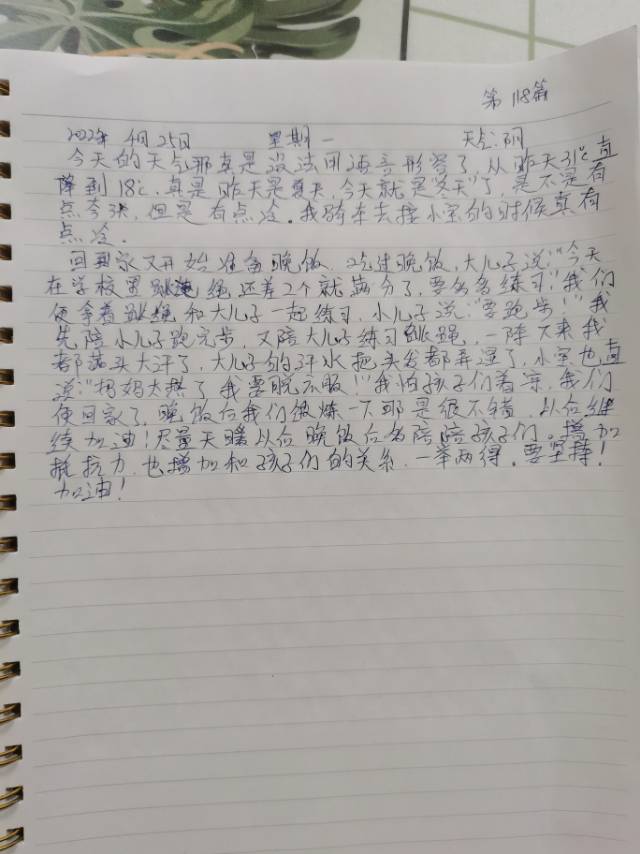 第118篇
2022年 4月25日 星期一 天气:阴
今天的天气那真是没法用语言形容了,从昨天31℃直
降到18℃,真是"昨天是夏天,今天就是冬天"了,是不是有
点夸张,但是有点冷。我骑车去接小宝的时候真有
点冷。
回到家又开始准备晚饭,吃过晚饭,大儿子说:"今天
在学校里跳绳还差2个就满分了,要多多练习"我们
便拿着跳绳和大儿子一起练习,小儿子说:"要跑步!"我
先陪小儿子跑完步,又陪大儿子练习跳绳,一阵下来我
都满头大汗了,大儿子的汗水把头发都弄湿了,小宝也直
说:"妈妈太热了我要脱衣服!"我怕孩子们着凉,我们
便回家了,晚饭后我们锻炼一下那是很不错,以后继
续加油!尽量天暖以后晚饭后多陪陪孩子们。增加
抵抗力,也增加和孩子们的关系,一举两得,要坚持!
加油!